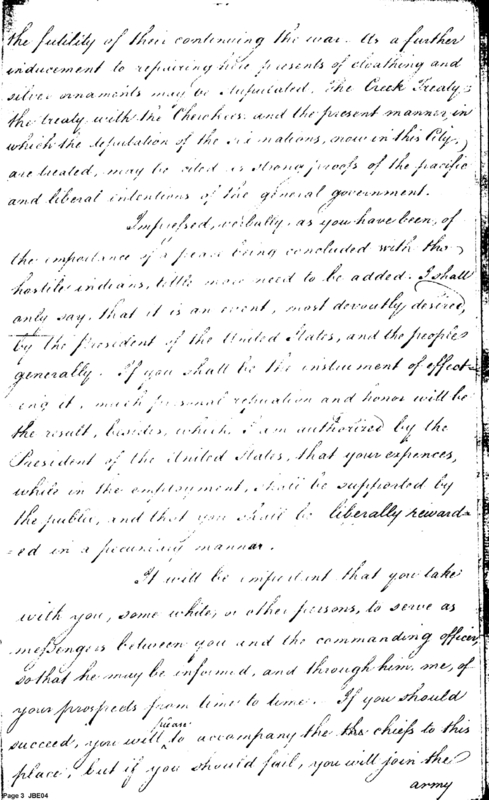 the futility of their continuing the war. As a further
inducement to repairing here presents of cloathing and
silver ornaments may be stipulated. The Creek Treaty,
the treaty with the Cherokees and the present manner in
which the deputation of the six nations, now in this City,
are treated, may be cited as strong proofs of the pacific
and liberal intentions of the general government.
Impressed, verbally as you have been, of
the importance of a peace being concluded with the
hostile indians, little more need to be added. I shall
only say, that it is an event, most devoutly desired,
by the president of the United States, and the people
generally. If you shall be the instrument of effect-
ing it, much personal reputation and honor will be
the result, besides, which, I am authorized by the
President of the United States, that your expences,
while in the employment, shall be supported by
the public, and that you shall be liberally reward-
-ed in a pecuniary manner.
It will be important that you take
with you, some white, or other persons, to serve as
messengers between you and the commanding officer,
so that he may be informed, and through him, me, of
your prospects from time to time. If you should
succeed, you will please to accompany the the chiefs to this
place, but if you should fail, you will join the
army
Page 3 JBE04